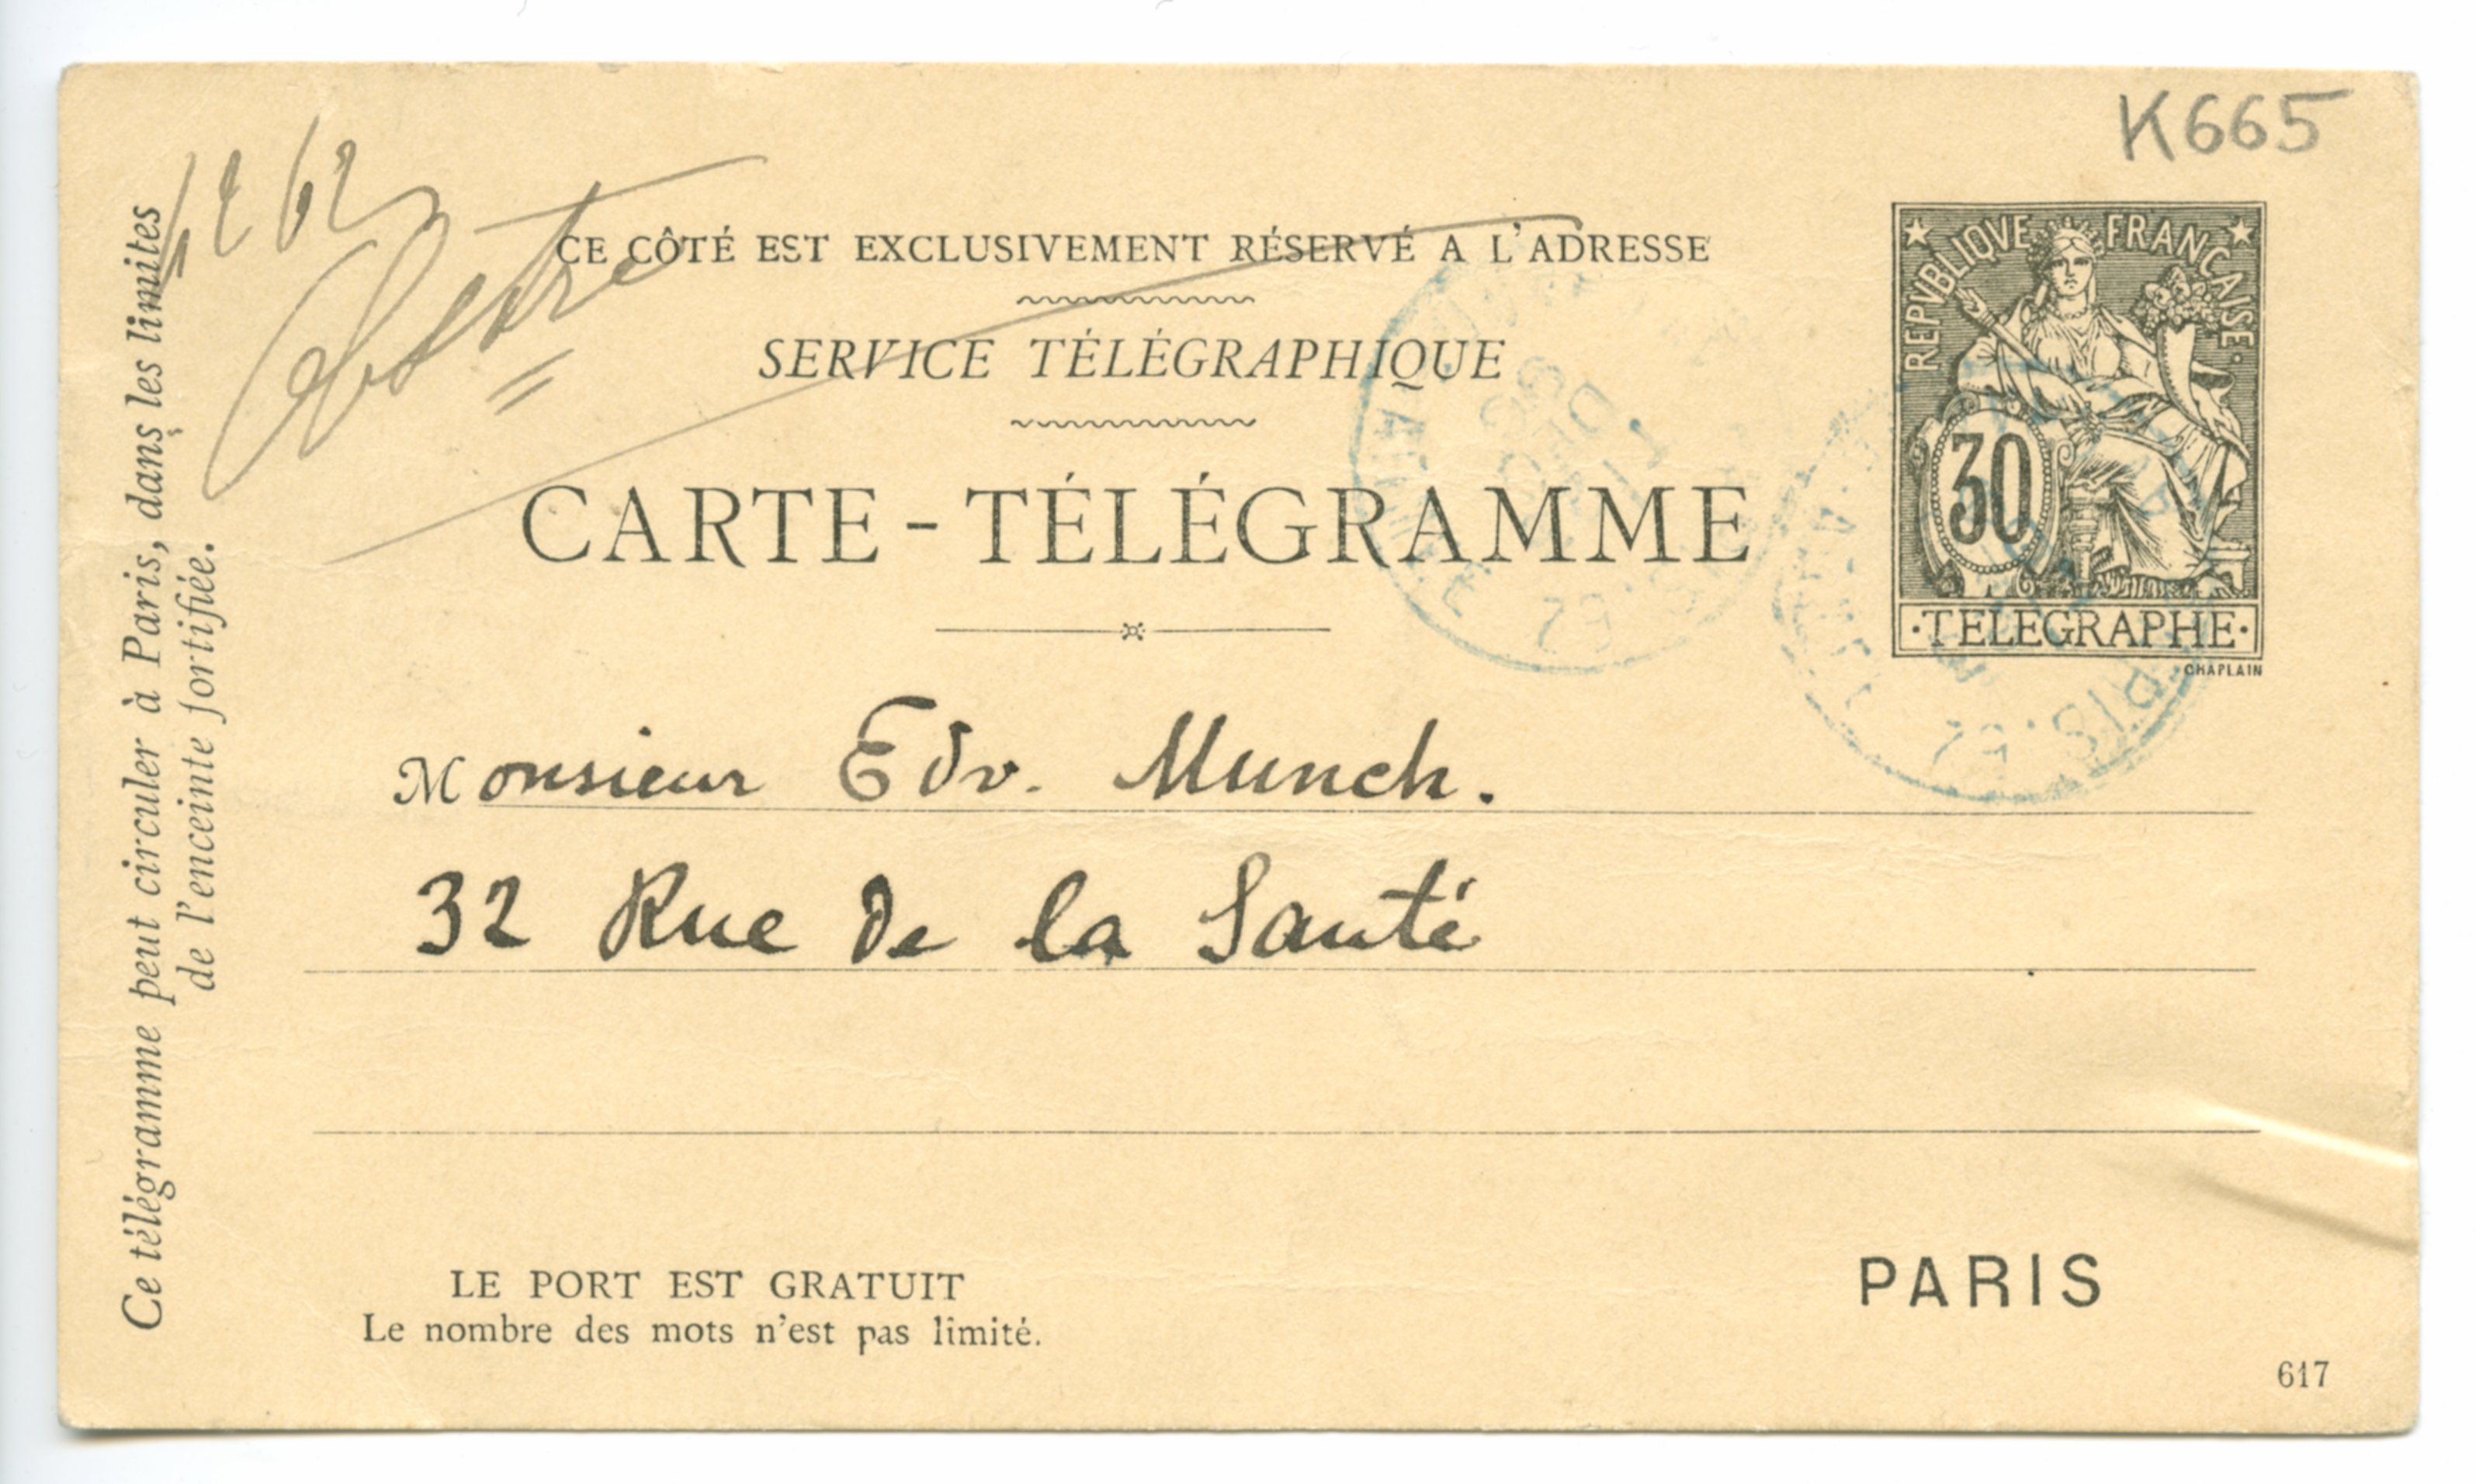 K665
CE CÔTÉ EST EXCLUSIVEMENT RÉSERVÉ A L'ADRESSE
SERVICE TÉLÉGRAPHIQUE
CARTE-TÉLÉGRAMME
REPVBLIQVE FRANCAISE
30
TELEGRAPHE
CHAPLAIN
Monsieur Edv. Munch.
32 Rue de la Santé
LE PORT EST GRATUIT
Le nombre des mots n'est pas limité.
PARIS
617
Ce télégramme peut circuler à Paris, dans les limites
de l'enceinte fortifiée.